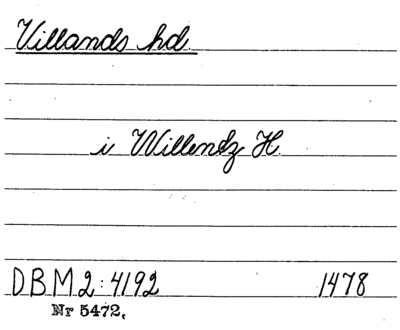 Villands hd.
i Willendz H.
DBM 2:4192 1478
Nr 5472,